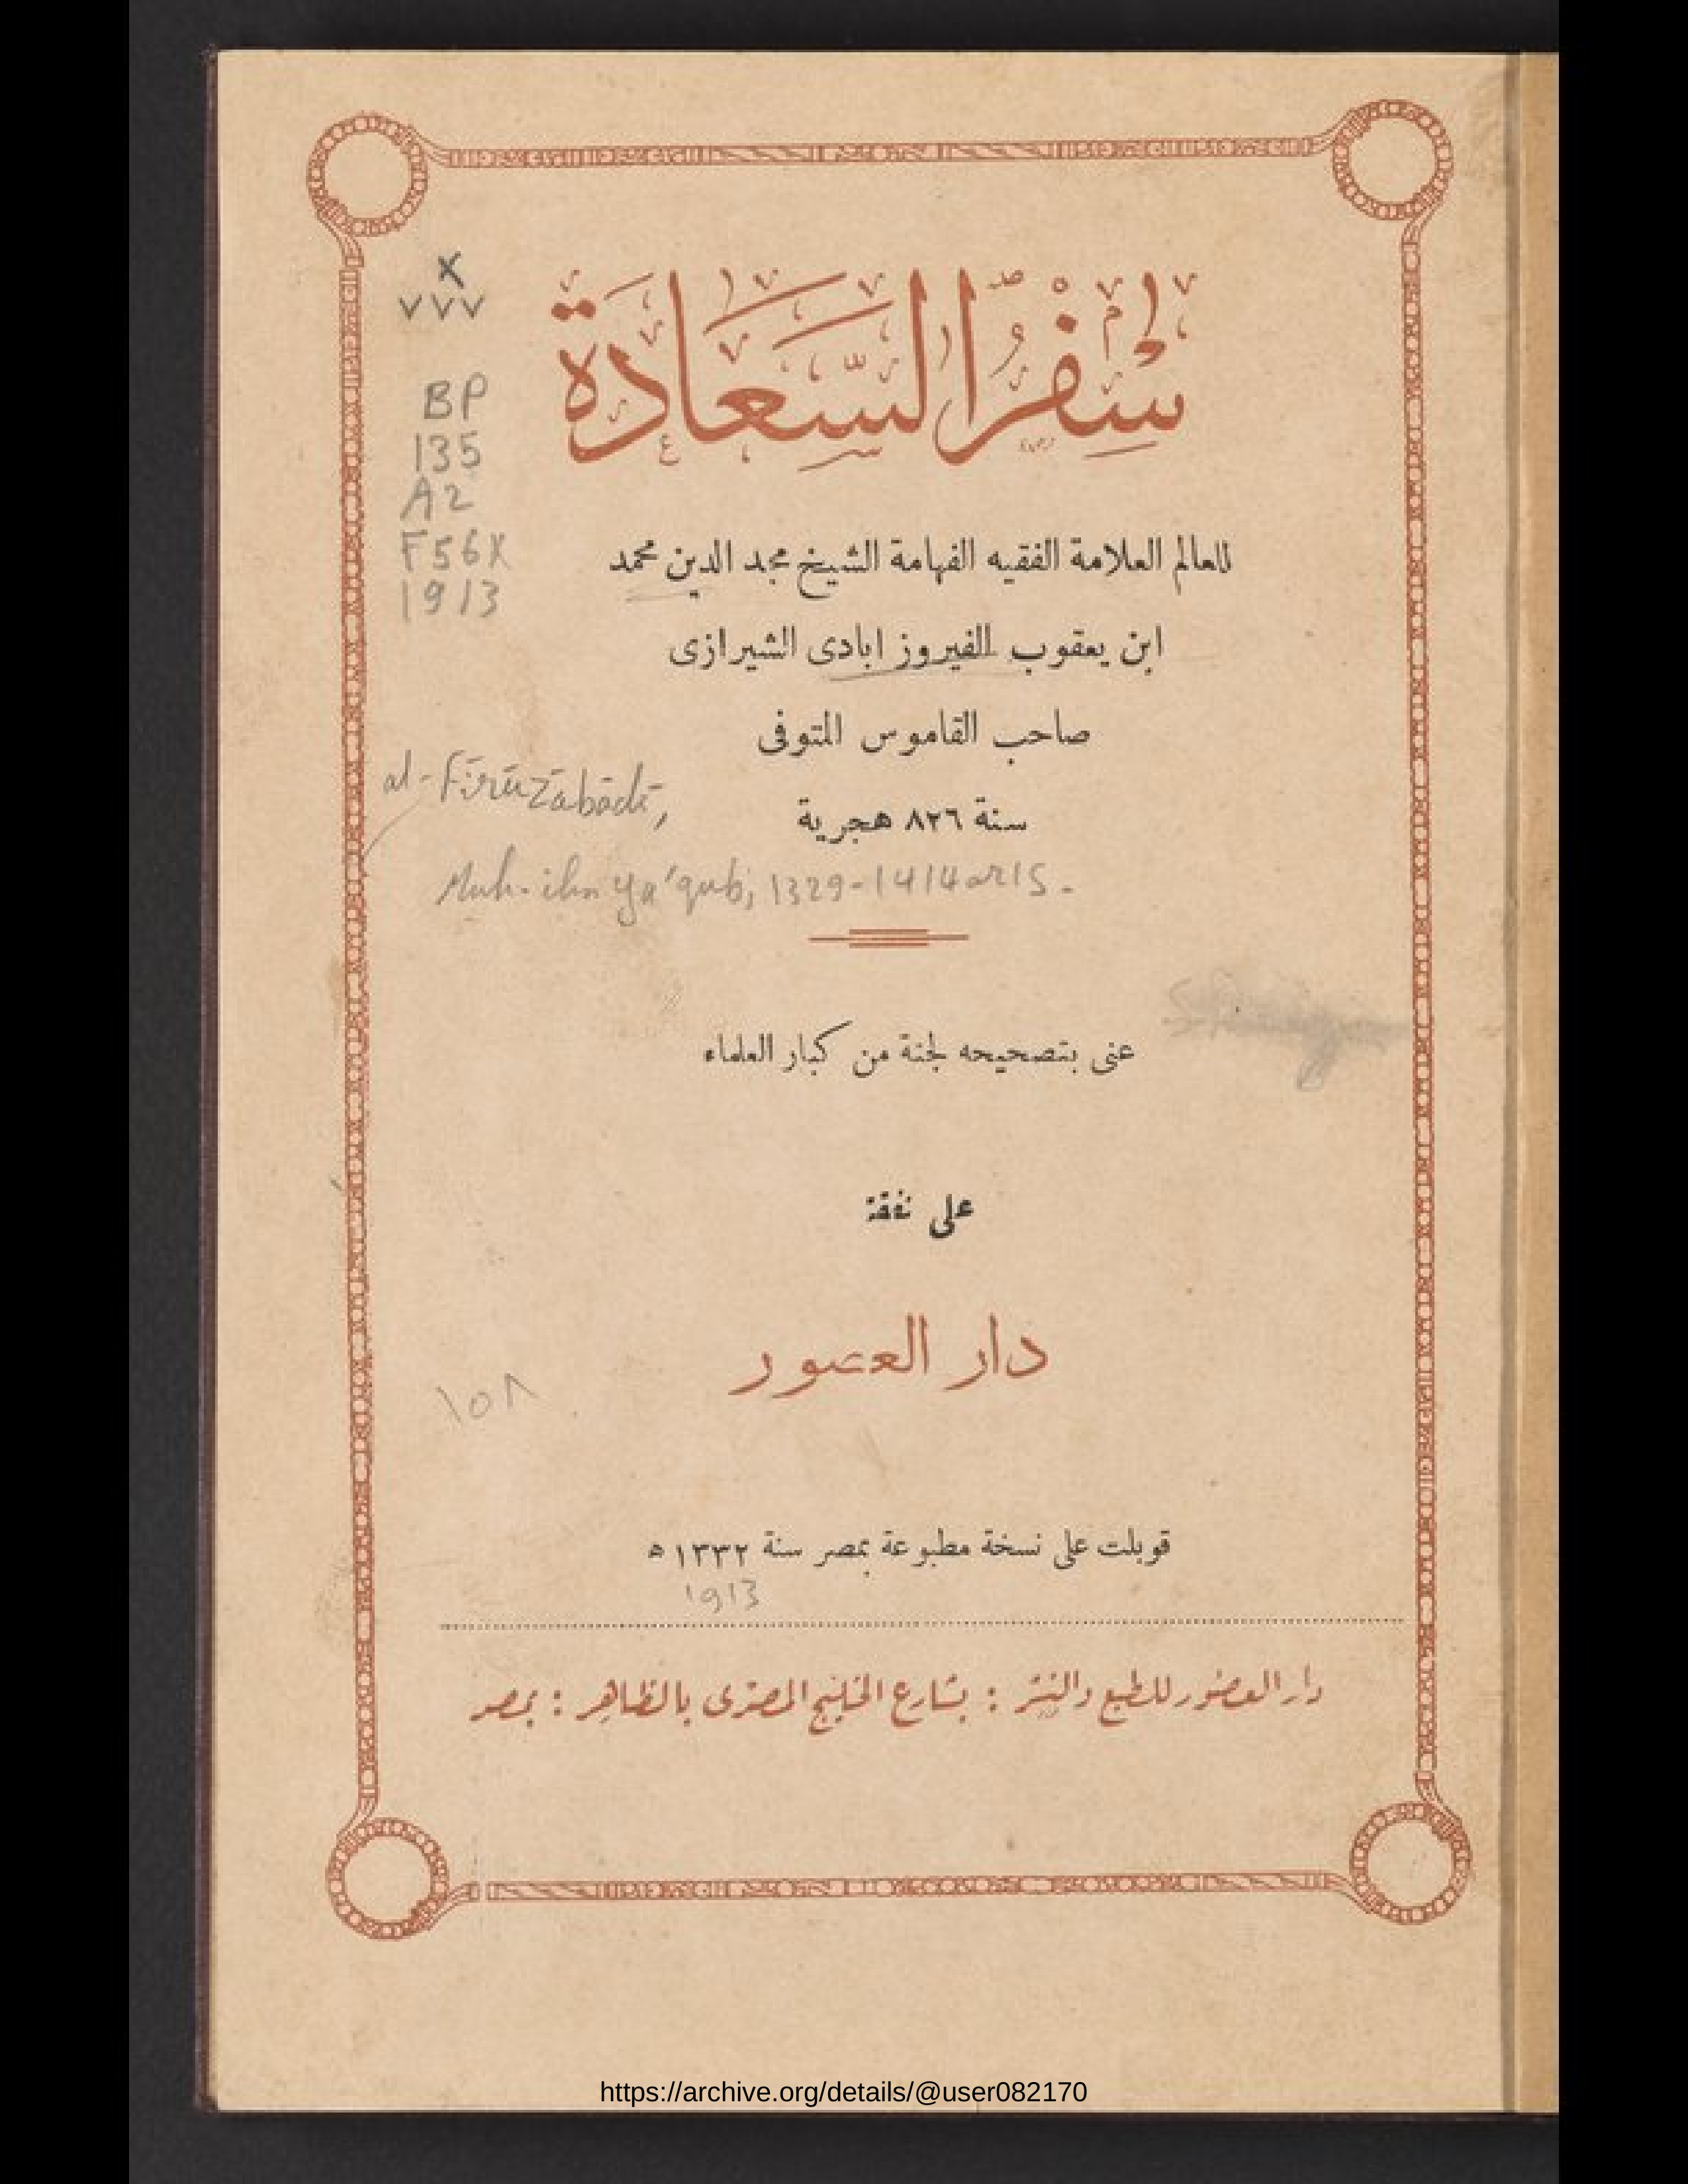 سِفْرُ السَّعَادَة
X
BP
135
A2
F56X
1913
للعالم العلامة الفقيه الفهامة الشيخ مجد الدين محمد
ابن يعقوب الفيروز ابادى الشيرازى
صاحب القاموس المتوفى
سنة ٨٢٦ هجرية
al-Fīrūzābādī,
Muh. ibn Ya'qub, 1329-1414 or 15.
عنى بتصحيحه لجنة من كبار العلماء
على نفقة
دار العصور
١٥٨
قوبلت على نسخة مطبوعة بمصر سنة ١٣٣٢ ه
1913
دار العصور للطبع والنشر : بشارع الخليج المصرى بالظاهر : بمصر
https://archive.org/details/@user082170